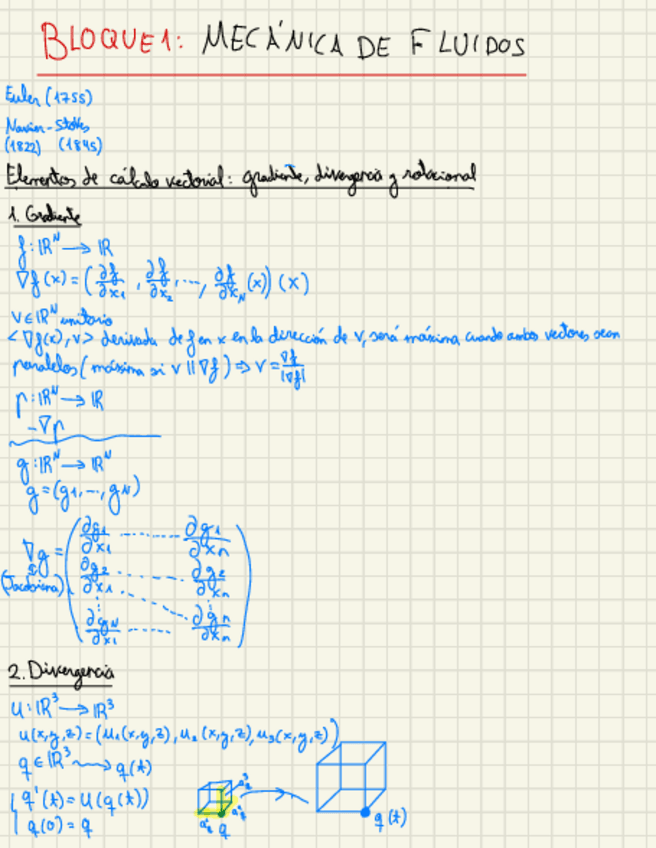 BLOQUE 1: MECÁNICA DE FLUIDOS
Euler (1755)
Navier-Stokes
(1822) (1845)
Elementos de cálculo vectorial: gradiente, divergencia y rotacional
1. Gradiente
f: ℝᴺ → ℝ
∇f(x) = (∂f/∂x₁, ∂f/∂x₂, ..., ∂f/∂x_N (x)) (x)
v ∈ ℝᴺ unitario
<∇f(x), v> derivada de f en x en la dirección de v, será máxima cuando ambos vectores sean
paralelos (máxima si v || ∇f) ⇒ v = ∇f/|∇f|
p: ℝᴺ → ℝ
-∇p
g: ℝᴺ → ℝᴺ
g = (g₁, ..., g_N)
∂g₁/∂x₁ ........ ∂g₁/∂x_n
∇g =
∂g₂/∂x₁ ........ ∂g₂/∂x_n
(Jacobiana)
∂g_N/∂x₁ ........ ∂g_n/∂x_n
2. Divergencia
u: ℝ³ → ℝ³
u(x,y,z) = (u₁(x,y,z), u₂(x,y,z), u₃(x,y,z))
q ∈ ℝ³ ⇝ q(t)
q'(t) = u(q(t))
q(0) = q
q
q(t)